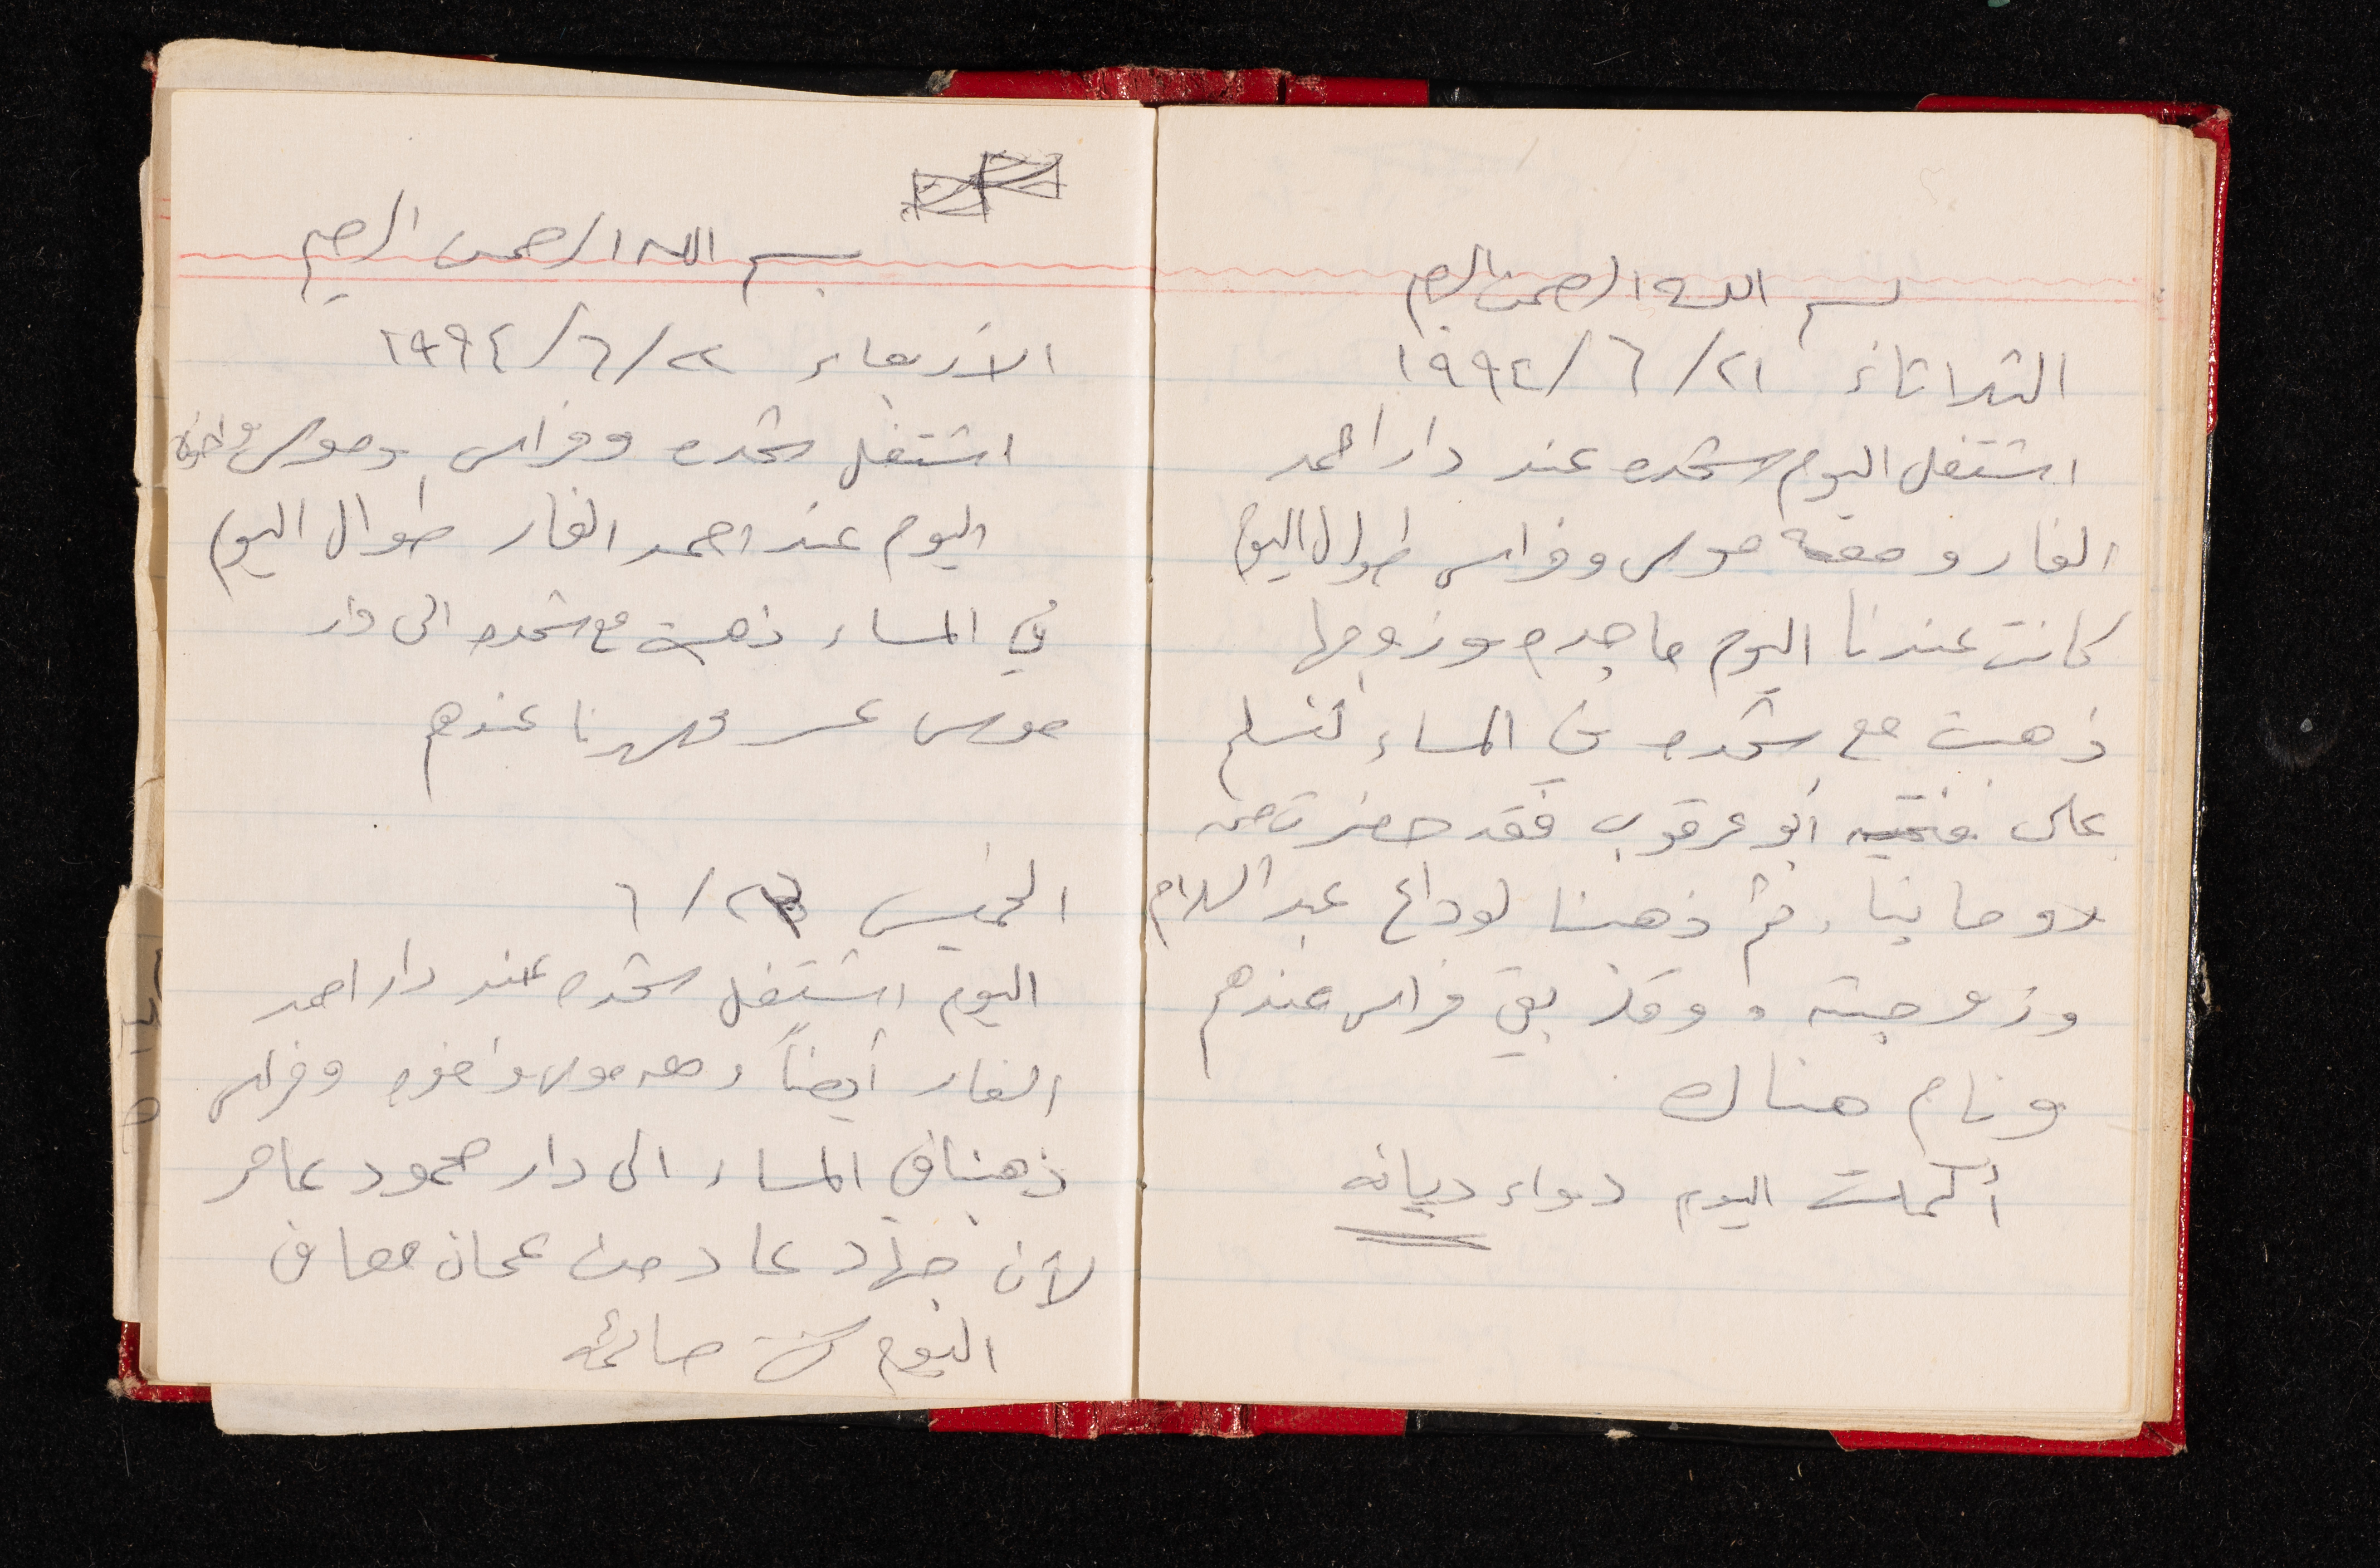 بسم الله الرحمن الرحيم
الثلاثاء ٢١/٦/١٩٩٤
اشتغل اليوم شحده عند دار احمد
الفار ومعه موسى وفراس طوال اليوم
كانت عندنا اليوم ماجده وزوجها
ذهبت مع شحده في المساء لنسلم
على فتحيه أبو عرقوب فقد حضرت من
رومانيا. ثم ذهبنا لوداع عبد السلام
وزوجته. وقد بقي فراس عندهم
ونام هناك
أكملت اليوم دواء ديانه
بسم الله الرحمن الرحيم
الأربعاء ٢٢/٦/١٩٩٤
اشتغل شحده وفراس وموسى واخوه
اليوم عند احمد الفار طوال اليوم
في المساء ذهبت مع شحده الى دار
موسى وسهرنا عندهم
الخميس ٢٣/٦
اليوم اشتغل شحده عند دار احمد
الفار أيضاً ومعه موسى واخوه وفراس
ذهبنا في المساء الى دار محمود عامر
لأن جهاد عاد من عمان معافى
اليوم كنت صائمه